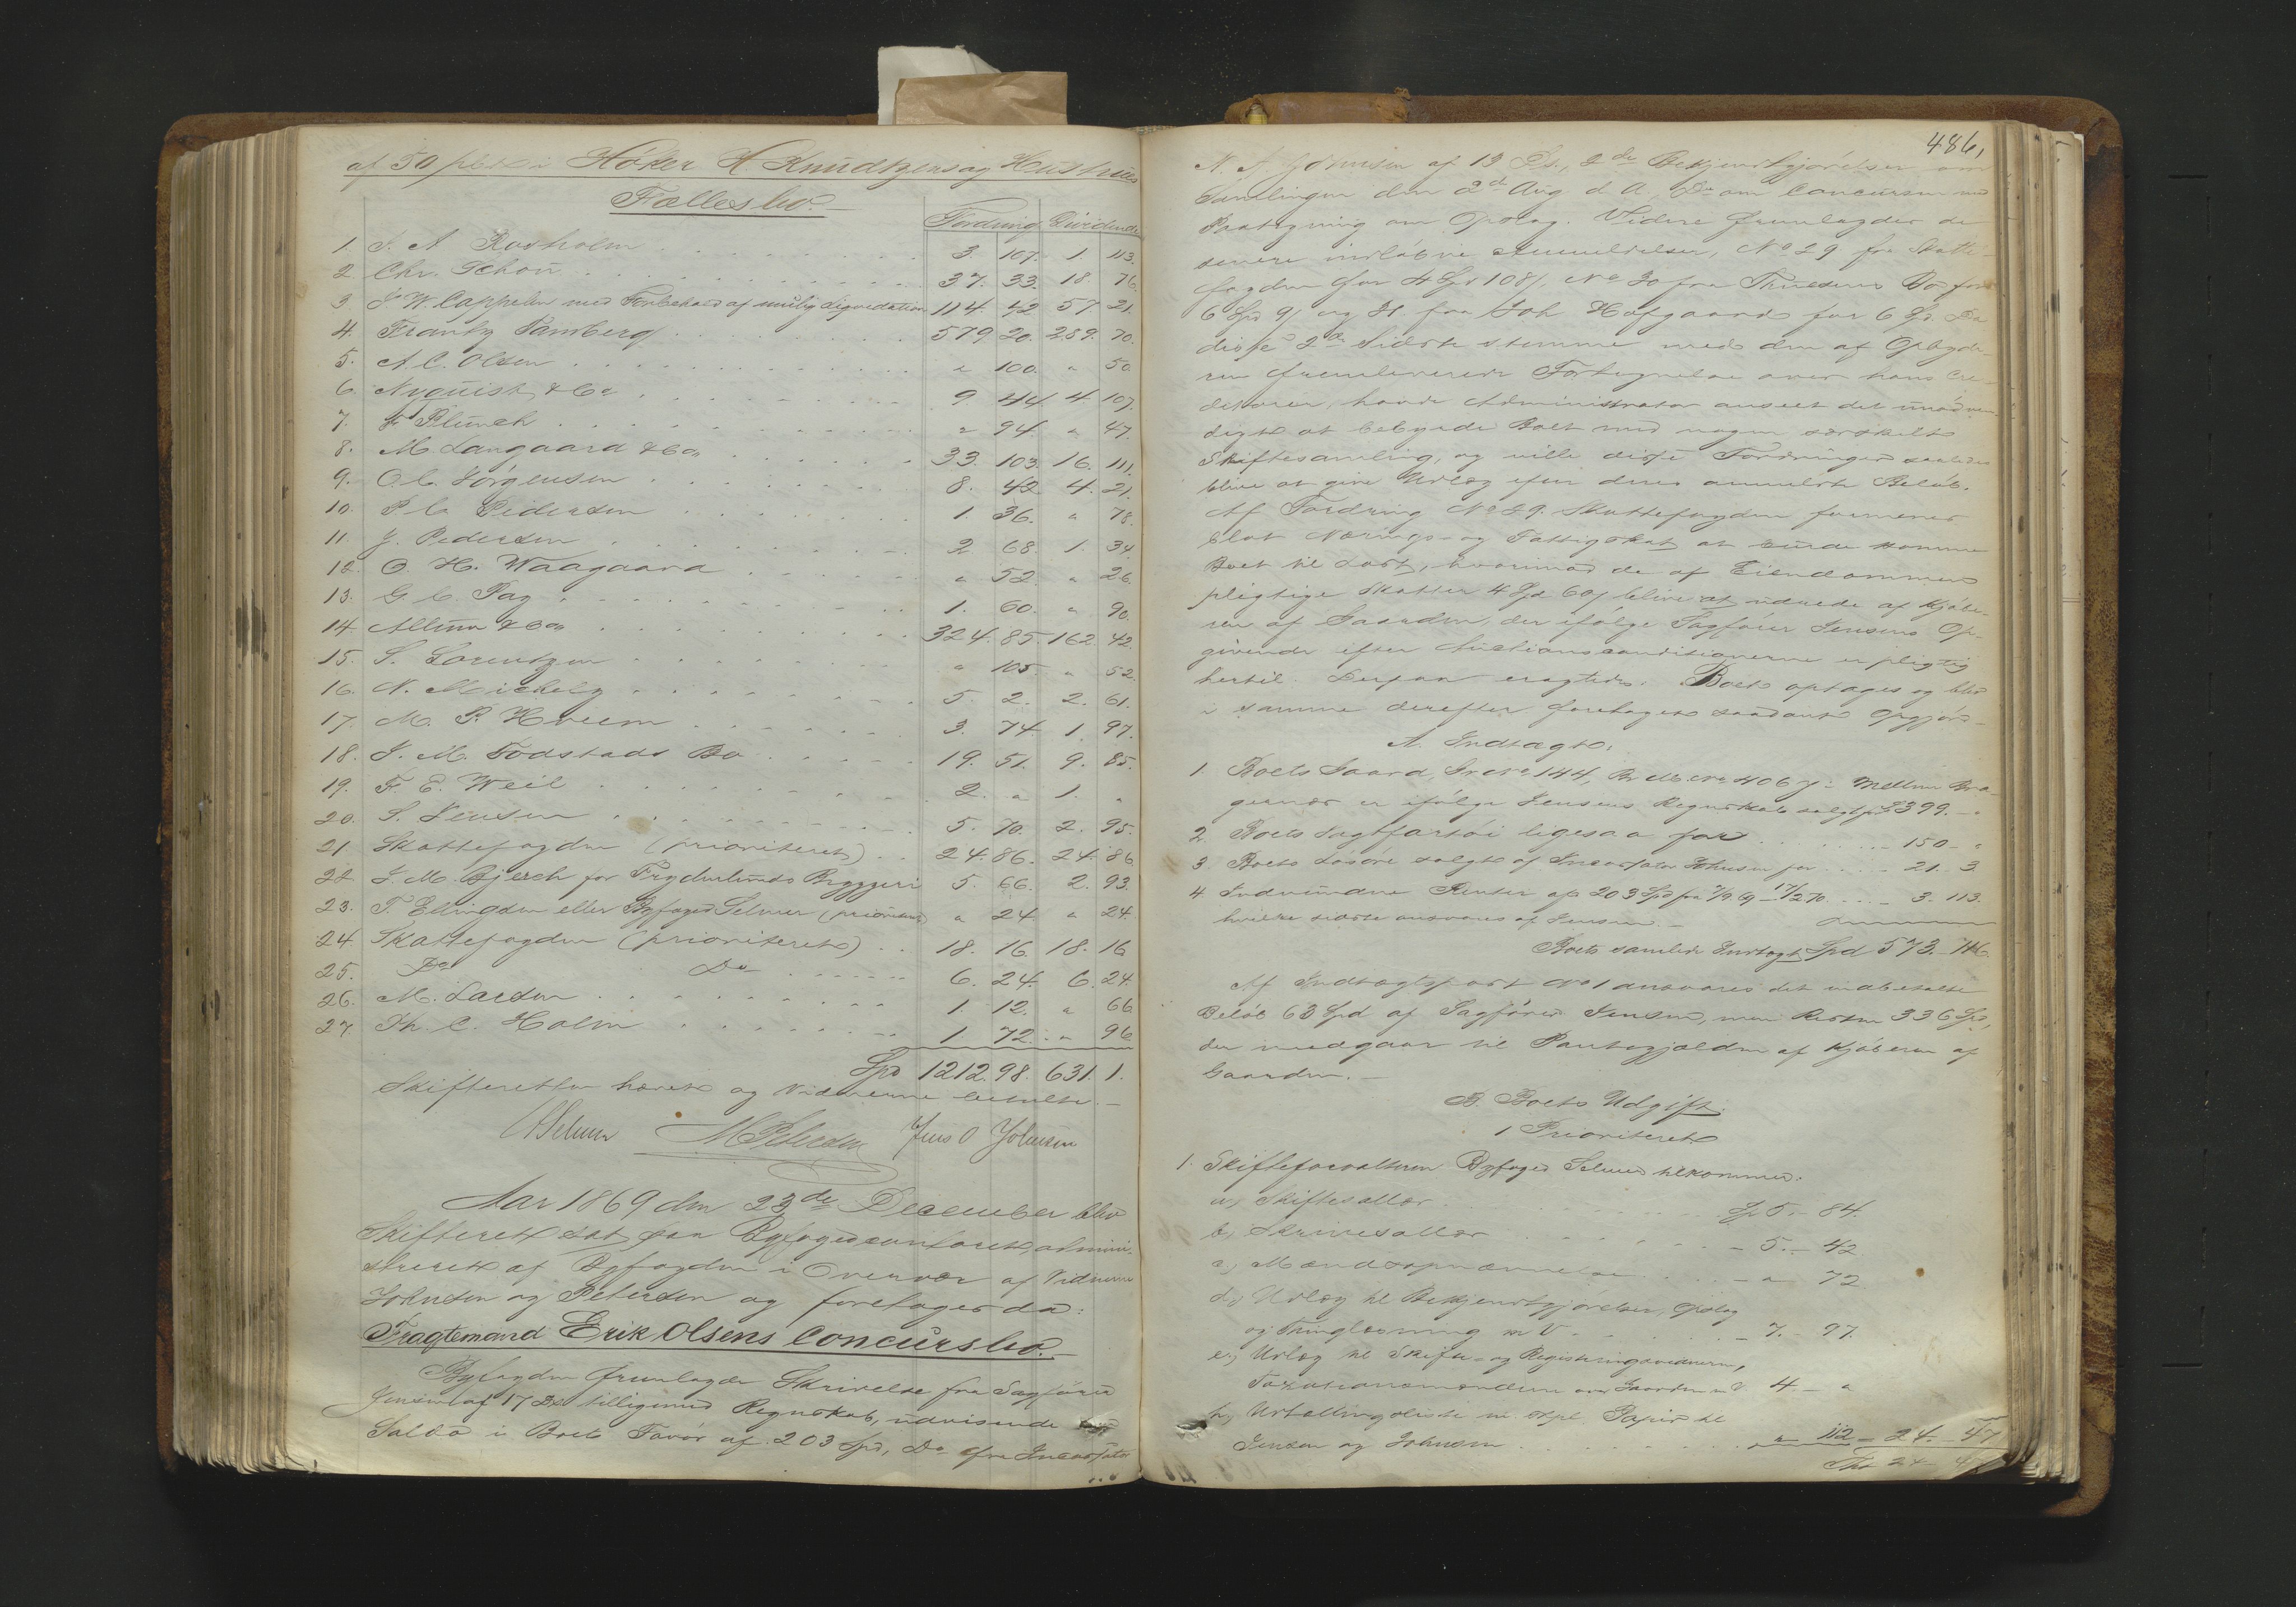 af 50 pCt i Høker H. Knudtzens og Hustrues
Fællesbo.
Fordring Dividende
1. S. A. Roxholm 3. 107. 1. 113.
2 Chr. Schou 37. 33. 18. 76.
3 J. W. Cappelen med Forbehold af mulig Liqvidation 114. 42 57 21.
4. Frantz Tamberg 579 20. 289. 70.
5. A. C. Olsen " 100. " 50
6. Nyquist & Co 9. 44 4. 107.
7. Plünch " 94. " 47.
8. M. Langaard & Co 33. 103. 16. 111.
9. O. C. Jörgensen 8. 42 4. 21.
10. P. C. Pedersen 1. 36. " 78.
11. J. Pedersen 2 68. 1. 34.
12. O. H. Waagaard " 52 " 26.
13. G. C. Fay 1. 60. " 90.
14. Allum & Co 324. 85. 162. 42.
15. S. Lorentzen " 105 " 52.
16. N. Michelz 5. 2. 2. 61.
17. M. P. Hveem 3. 74. 1. 97.
18. J. M. Todstads Bo 19. 51. 9. 85.
19. F. E. Weil 2. " 1. "
20. S. Jensen 5. 70. 2. 95.
21. Skattefogden (prioriteret) 24. 86. 24. 86
22. J. M. Bjerch for Frydenlunds Bryggeri 5. 66. 2. 93.
23. T. Ellingsen eller Byfoged Selmer (prioriteret) " 24 " 24.
24. Skattefogden (prioriteret) 18. 16. 18. 16
25. Do Do 6. 24. 6. 24.
26. M. Larsen 1. 12. " 66
27. Th. C. Holm 1 72. " 96
Spd 1212. 98. 631. 1.
Skifteretten hævet og Vidnerne betalte.
Selmer M Petersen Jens O Johnsen
Aar 1869 den 23de December blev
Skifteret sat paa Byfogedcontoret, admini-
streret af Byfogden i Overvær af Vidnerne
Johnsen og Petersen og foretoges da:
Fragtemand Erik Olsens Concursbo.
Byfogden fremlagde Skrivelse fra Sagförer
Jensen af 17 Ds tilligemed Regnskab, udvisende
Saldo i Boets Favör af 203 Spd, Do fra Incassator
486,
N. A. Johnsen af 13 Ds., 2de Bekjendtgjörelser om
Samlingen den 2de Aug d. A., Do om Concursen med
Paategning om Opslag. Videre fremlagdes de
senere indlöbne Anmeldelser, No 29 fra Skatte-
fogden for 4 Spd 108 s, No 30 fra Thuesens Bo for
6 Spd 9 s og 31. fra Joh Hofgaard for 6 Spd. Da
disse 2de sidste stemme med den af Opbyde-
ren fremleverede Fortegnelse over hans Cre-
ditorer, havde Administrator anseet det unödven-
digt at bebyrde Boet med nogen særskilt
Skiftesamling, og ville disse Fordringer saaledes
blive at give Udlæg efter deres anmeldte Belöb.
Af Fordring No 29. Skattefogden formenes
blot Nærings- og Fattigskat at burde komme
Boet til Last, hvorimod de af Eiendommen
pligtige Skatter 4 Spd 60 s blive at udrede af Kjöbe-
ren af Gaarden, der ifölge Sagförer Jensens Op-
givende efter Auctionsconditionerne er pligtig
hertil. Derpaa eragtedes: Boet optages og blev
i samme derefter foretaget saadant Opgjör-
A. Indtægt.
1 Boets Gaard, Gr. No 144, Br. No 406 j i Mellem Bra-
gernæs er ifölge Jensens Regnskab solgt for 399. - "
2. Boets Jagtfartöi ligesaa for 150 - "
3 Boets Lösöre solgt af Incassator Johnsen for 21. 3
4. Indvundne Renter af 203 Spd fra 7/9 69 - 17/2 70 3. 113.
hvilke sidste ansvares af Jensen.
Boets samlede Indtægt Spd 573. 116
Af Indtægtspost No 1 ansvares det indbetalte
Belöb 63 Spd af Sagförer Jensen, men Resten 336 Spd,
der medgaar til Pantegjælden af Kjöberen af
Gaarden.
B. Boets Udgift.
1 Prioriteret
1. Skifteforvalteren Byfoged Selmer tilkommer:
a, Skiftesallær Sp 5. - 84.
b, Skriversallær - 5. - 42
c, Mændsopnævnelse - " 72
d, Udlæg til Bekjendtgjörelser, Opslag
og Thinglæsning m V. - 7. - 97.
e, Udlæg til Skifte- og Registreringsvidnerne,
Taxationsmændene over Gaarden m V 4 - "
f, Udtallingsliste m. stpl. Papir til
Jensen og Johnsen " 112 - 24. - 47